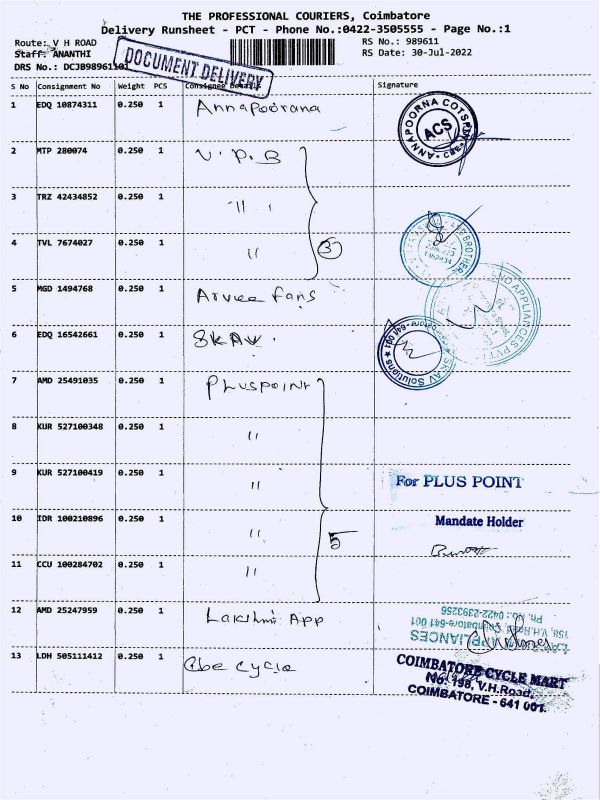 THE PROFESSIONAL COURIERS, Coimbatore
Delivery Runsheet - PCT - Phone No.:0422-3505555 - Page No.:1
Route: V H ROAD
RS No.: 989611
Staff: ANANTHI
RS Date: 30-Jul-2022
DRS No.: DCJB98961101
DOCUMENT DELIVERY
S No Consignment No Weight PCS Consignee Details Signature
1 EDQ 10874311 0.250 1 Annapoorana
ANNAPOORNA COTSPIN
ACS
CBE
2 MTP 280074 0.250 1 V.P.B
3 TRZ 42434852 0.250 1 "
4 TVL 7674027 0.250 1 " 3
BROTHER
5 MGD 1494768 0.250 1 Arvee fans
APPLIANCES PVT
6 EDQ 16542661 0.250 1 SKAV
SKAV Solutions
641 001
7 AMD 25491035 0.250 1 Pluspoint
8 KUR 527100348 0.250 1 "
9 KUR 527100419 0.250 1 "
For PLUS POINT
10 IDR 100210896 0.250 1 " 5
Mandate Holder
11 CCU 100284702 0.250 1 "
12 AMD 25247959 0.250 1 Lakshmi App
APPLIANCES
158, V.H.Road, Coimbatore-641 001
Ph. No.: 0422-2393256
13 LDH 505111412 0.250 1 Cbe cycle
COIMBATORE CYCLE MART
No. 198, V.H.Road,
COIMBATORE - 641 001.